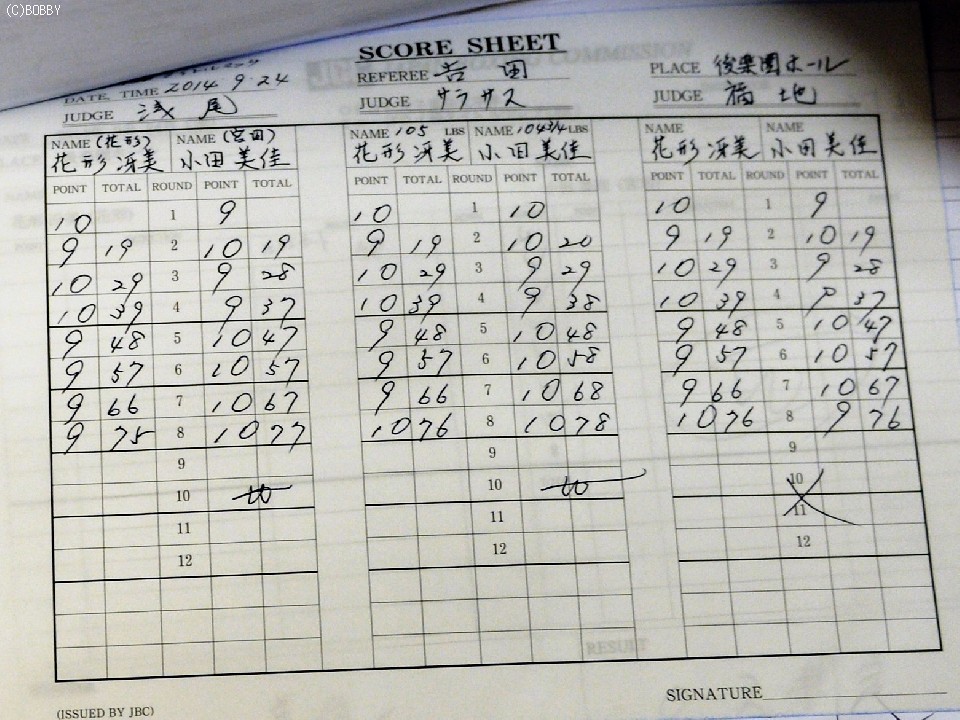 (C)BOBBY
SCORE SHEET
DATE, TIME 2014 9.24 REFEREE 吉田 PLACE 後楽園ホール
JUDGE 浅尾 JUDGE サラサス JUDGE 福地
NAME (花形) NAME (宮田) NAME 105 LBS NAME 104 3/4 LBS NAME NAME
花形冴美 小田美佳 花形冴美 小田美佳 花形冴美 小田美佳
POINT TOTAL ROUND POINT TOTAL POINT TOTAL ROUND POINT TOTAL POINT TOTAL ROUND POINT TOTAL
10 1 9 10 1 10 10 1 9
9 19 2 10 19 9 19 2 10 20 9 19 2 10 19
10 29 3 9 28 10 29 3 9 29 10 29 3 9 28
10 39 4 9 37 10 39 4 9 38 10 39 4 9 37
9 48 5 10 47 9 48 5 10 48 9 48 5 10 47
9 57 6 10 57 9 57 6 10 58 9 57 6 10 57
9 66 7 10 67 9 66 7 10 68 9 66 7 10 67
9 75 8 10 77 10 76 8 10 78 10 76 8 9 76
9 9 9
10 10 10
11 11 11
12 12 12
(ISSUED BY JBC) SIGNATURE